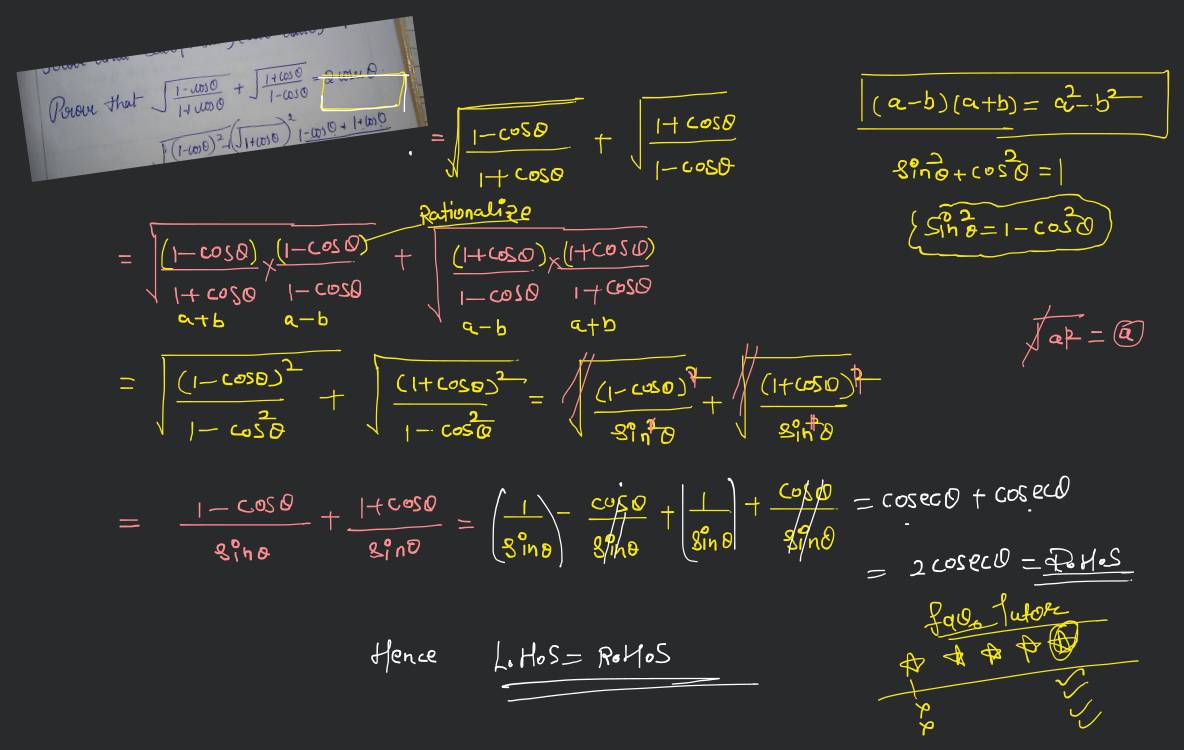 Prove that √((1-cosθ)/(1+cosθ)) + √((1+cosθ)/(1-cosθ)) =
√(1-cosθ)² (√1+cosθ)² 1-cosθ + 1+cosθ
= √((1-cosθ)/(1+cosθ)) + √((1+cosθ)/(1-cosθ))
(a-b)(a+b) = a²-b²
sin²θ+cos²θ = 1
sin²θ = 1-cos²θ
Rationalize
= √((1-cosθ)/(1+cosθ) × (1-cosθ)/(1-cosθ)) + √((1+cosθ)/(1-cosθ) × (1+cosθ)/(1+cosθ))
a+b a-b a-b a+b
√a² = a
= √((1-cosθ)²/(1-cos²θ)) + √((1+cosθ)²/(1-cos²θ)) = √((1-cosθ)²/sin²θ) + √((1+cosθ)²/sin²θ)
= (1-cosθ)/sinθ + (1+cosθ)/sinθ = (1/sinθ) - cosθ/sinθ + (1/sinθ) + cosθ/sinθ = cosecθ + cosecθ
= 2cosecθ = R.H.S
Tutor
Hence L.H.S = R.H.S